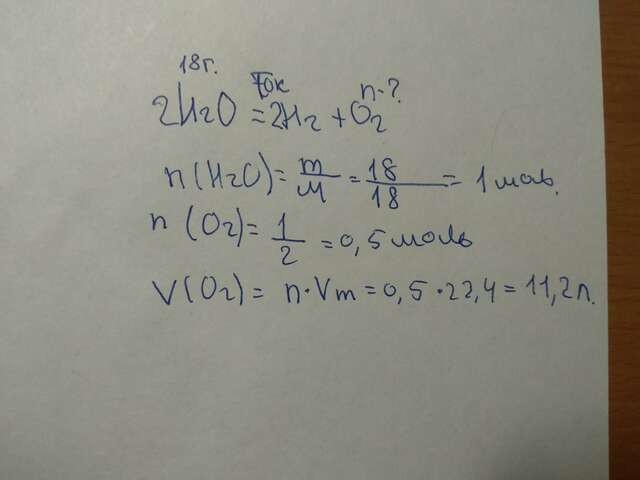 18г. ток n-?
2H2O = 2H2 + O2
n(H2O) = m/M = 18/18 = 1 моль.
n (O2) = 1/2 = 0,5 моль
V(O2) = n·Vm = 0,5·22,4 = 11,2л.